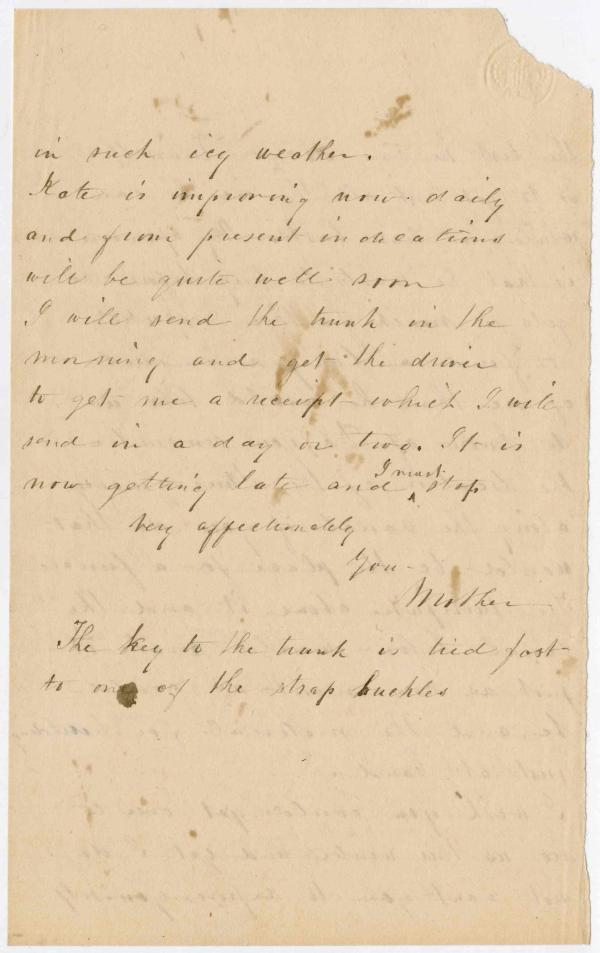 in such icy weather.
Kate is improving now daily
and from present indications
will be quite well soon
I will send the trunk in the
morning and get the driver
to get me a receipt which I will
send in a day or two. It is
now getting late and I must stop
Very affectionately
Your
Mother
The key to the trunk is tied fast
to one of the strap buckles